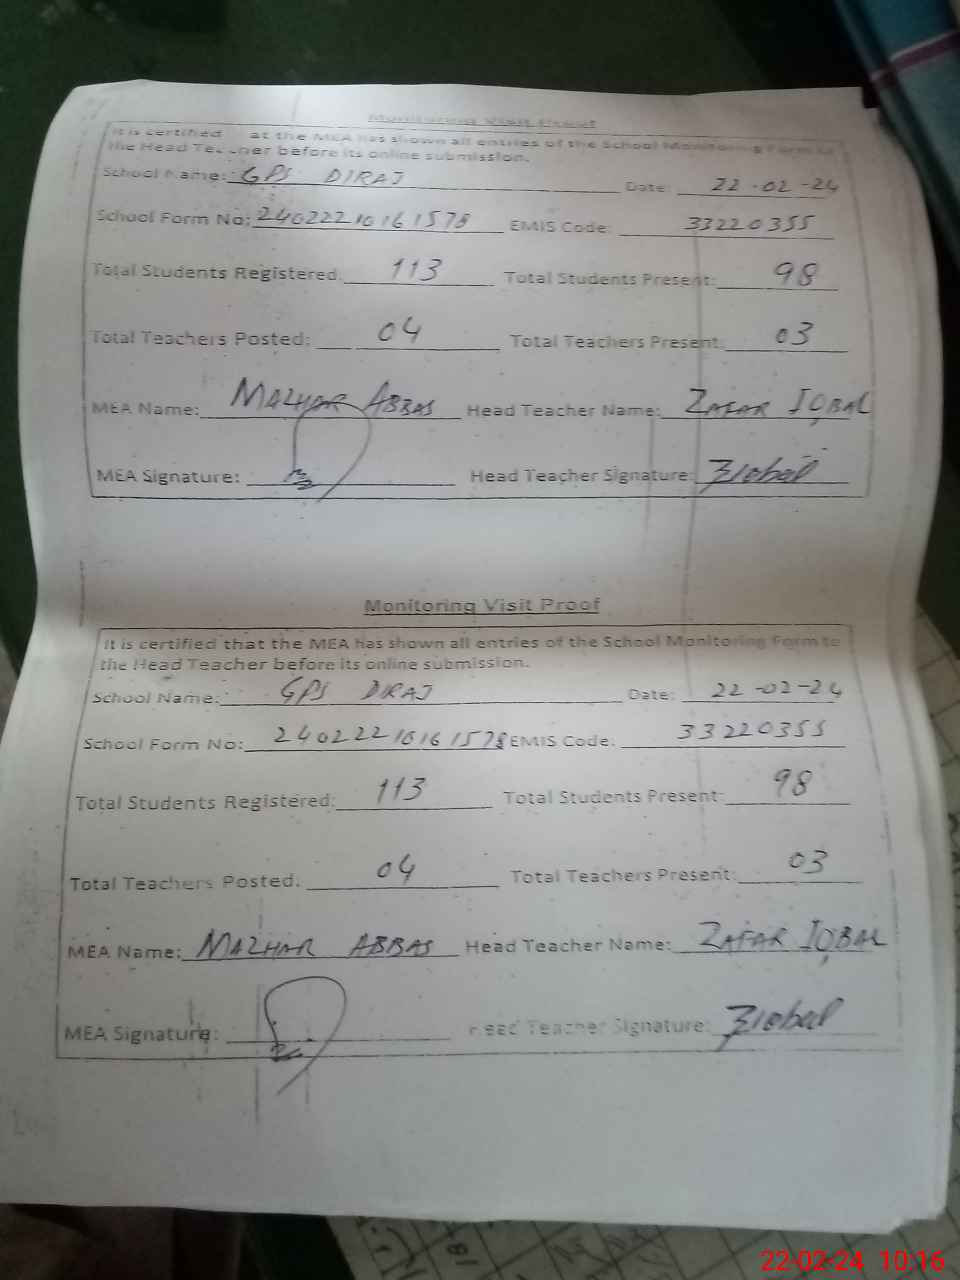 Monitoring Visit Proof
It is certified at the MEA has shown all entries of the School Monitoring Form to
the Head Teacher before its online submission.
School Name: GPS DIRAJ Date: 22-02-24
School Form No: 24022210161578 EMIS Code: 33220355
Total Students Registered: 113 Total Students Present: 98
Total Teachers Posted: 04 Total Teachers Present: 03
MEA Name: MAZHAR ABBAS Head Teacher Name: ZAFAR IQBAL
MEA Signature: Head Teacher Signature: ZIqbal
Monitoring Visit Proof
It is certified that the MEA has shown all entries of the School Monitoring Form to
the Head Teacher before its online submission.
School Name: GPS DIRAJ Date: 22-02-24
School Form No: 24022210161578 EMIS Code: 33220355
Total Students Registered: 113 Total Students Present: 98
Total Teachers Posted: 04 Total Teachers Present: 03
MEA Name: MAZHAR ABBAS Head Teacher Name: ZAFAR IQBAL
MEA Signature: Head Teacher Signature: ZIqbal
18
22-02-24 10:16